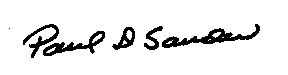 Paul D Sander